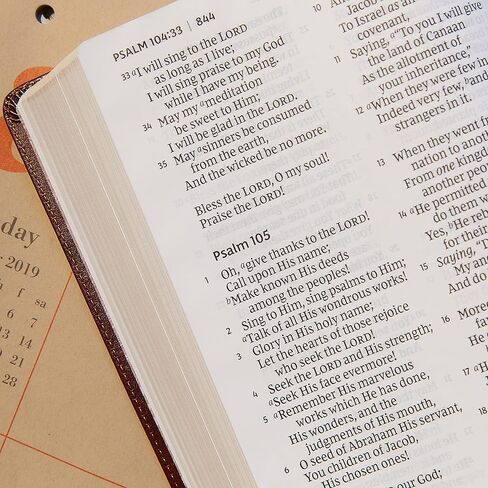 PSALM 104:33 | 844
33 ᵃI will sing to the LORD
as long as I live;
I will sing praise to my God
while I have my being.
34 May my ᵃmeditation
be sweet to Him;
I will be glad in the LORD.
35 May ᵃsinners be consumed
from the earth,
And the wicked be no more.
Bless the LORD, O my soul!
Praise the LORD!
Psalm 105
1 Oh, ᵃgive thanks to the LORD!
Call upon His name;
ᵇMake known His deeds
among the peoples!
2 Sing to Him, sing psalms to Him;
ᵃTalk of all His wondrous works!
3 Glory in His holy name;
Let the hearts of those rejoice
who seek the LORD!
4 Seek the LORD and His strength;
ᵃSeek His face evermore!
5 ᵃRemember His marvelous
works which He has done,
His wonders, and the
judgments of His mouth,
6 O seed of Abraham His servant,
You children of Jacob,
His chosen ones!
our God;
10 And
Jacob
To Israel as an
covenant,
11 Saying, ᵃ"To you I will give
the land of Canaan
As the allotment of
your inheritance,"
12 ᵃWhen they were few in
Indeed very few, ᵇand
strangers in it.
13 When they went from
nation to another
From one kingdom
another people
14 ᵃHe permitted
do them
Yes, ᵇHe
for their
15 Saying, "Do
My
And do
16 Moreo
the
He
17 ᵃHe
18
day
r 2019
f sa
6 7
13 14
20 21
28